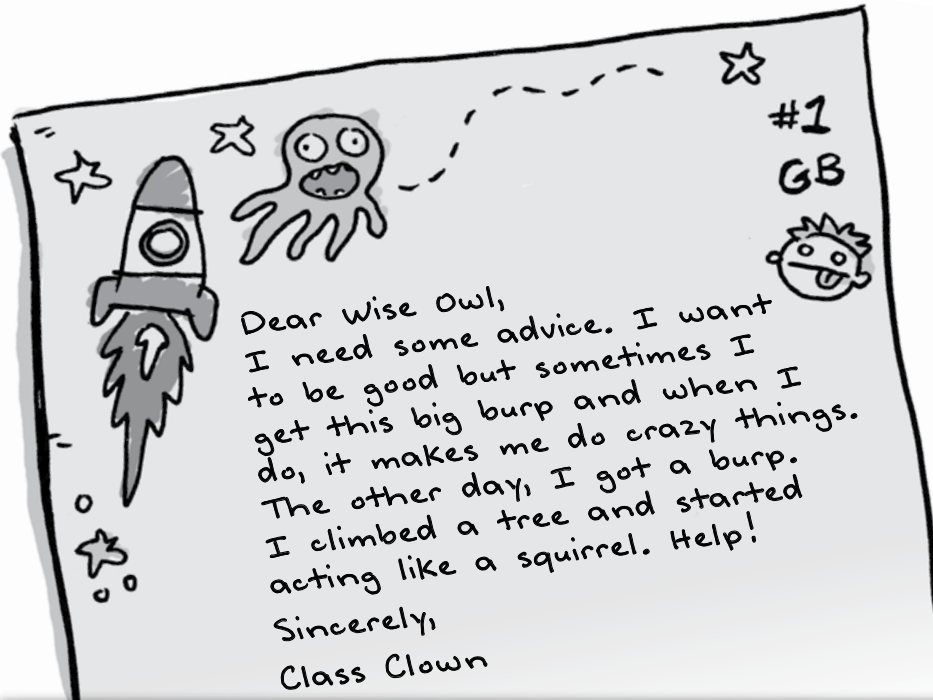 #1
GB
Dear Wise Owl,
I need some advice. I want
to be good but sometimes I
get this big burp and when I
do, it makes me do crazy things.
The other day, I got a burp.
I climbed a tree and started
acting like a squirrel. Help!
Sincerely,
Class Clown